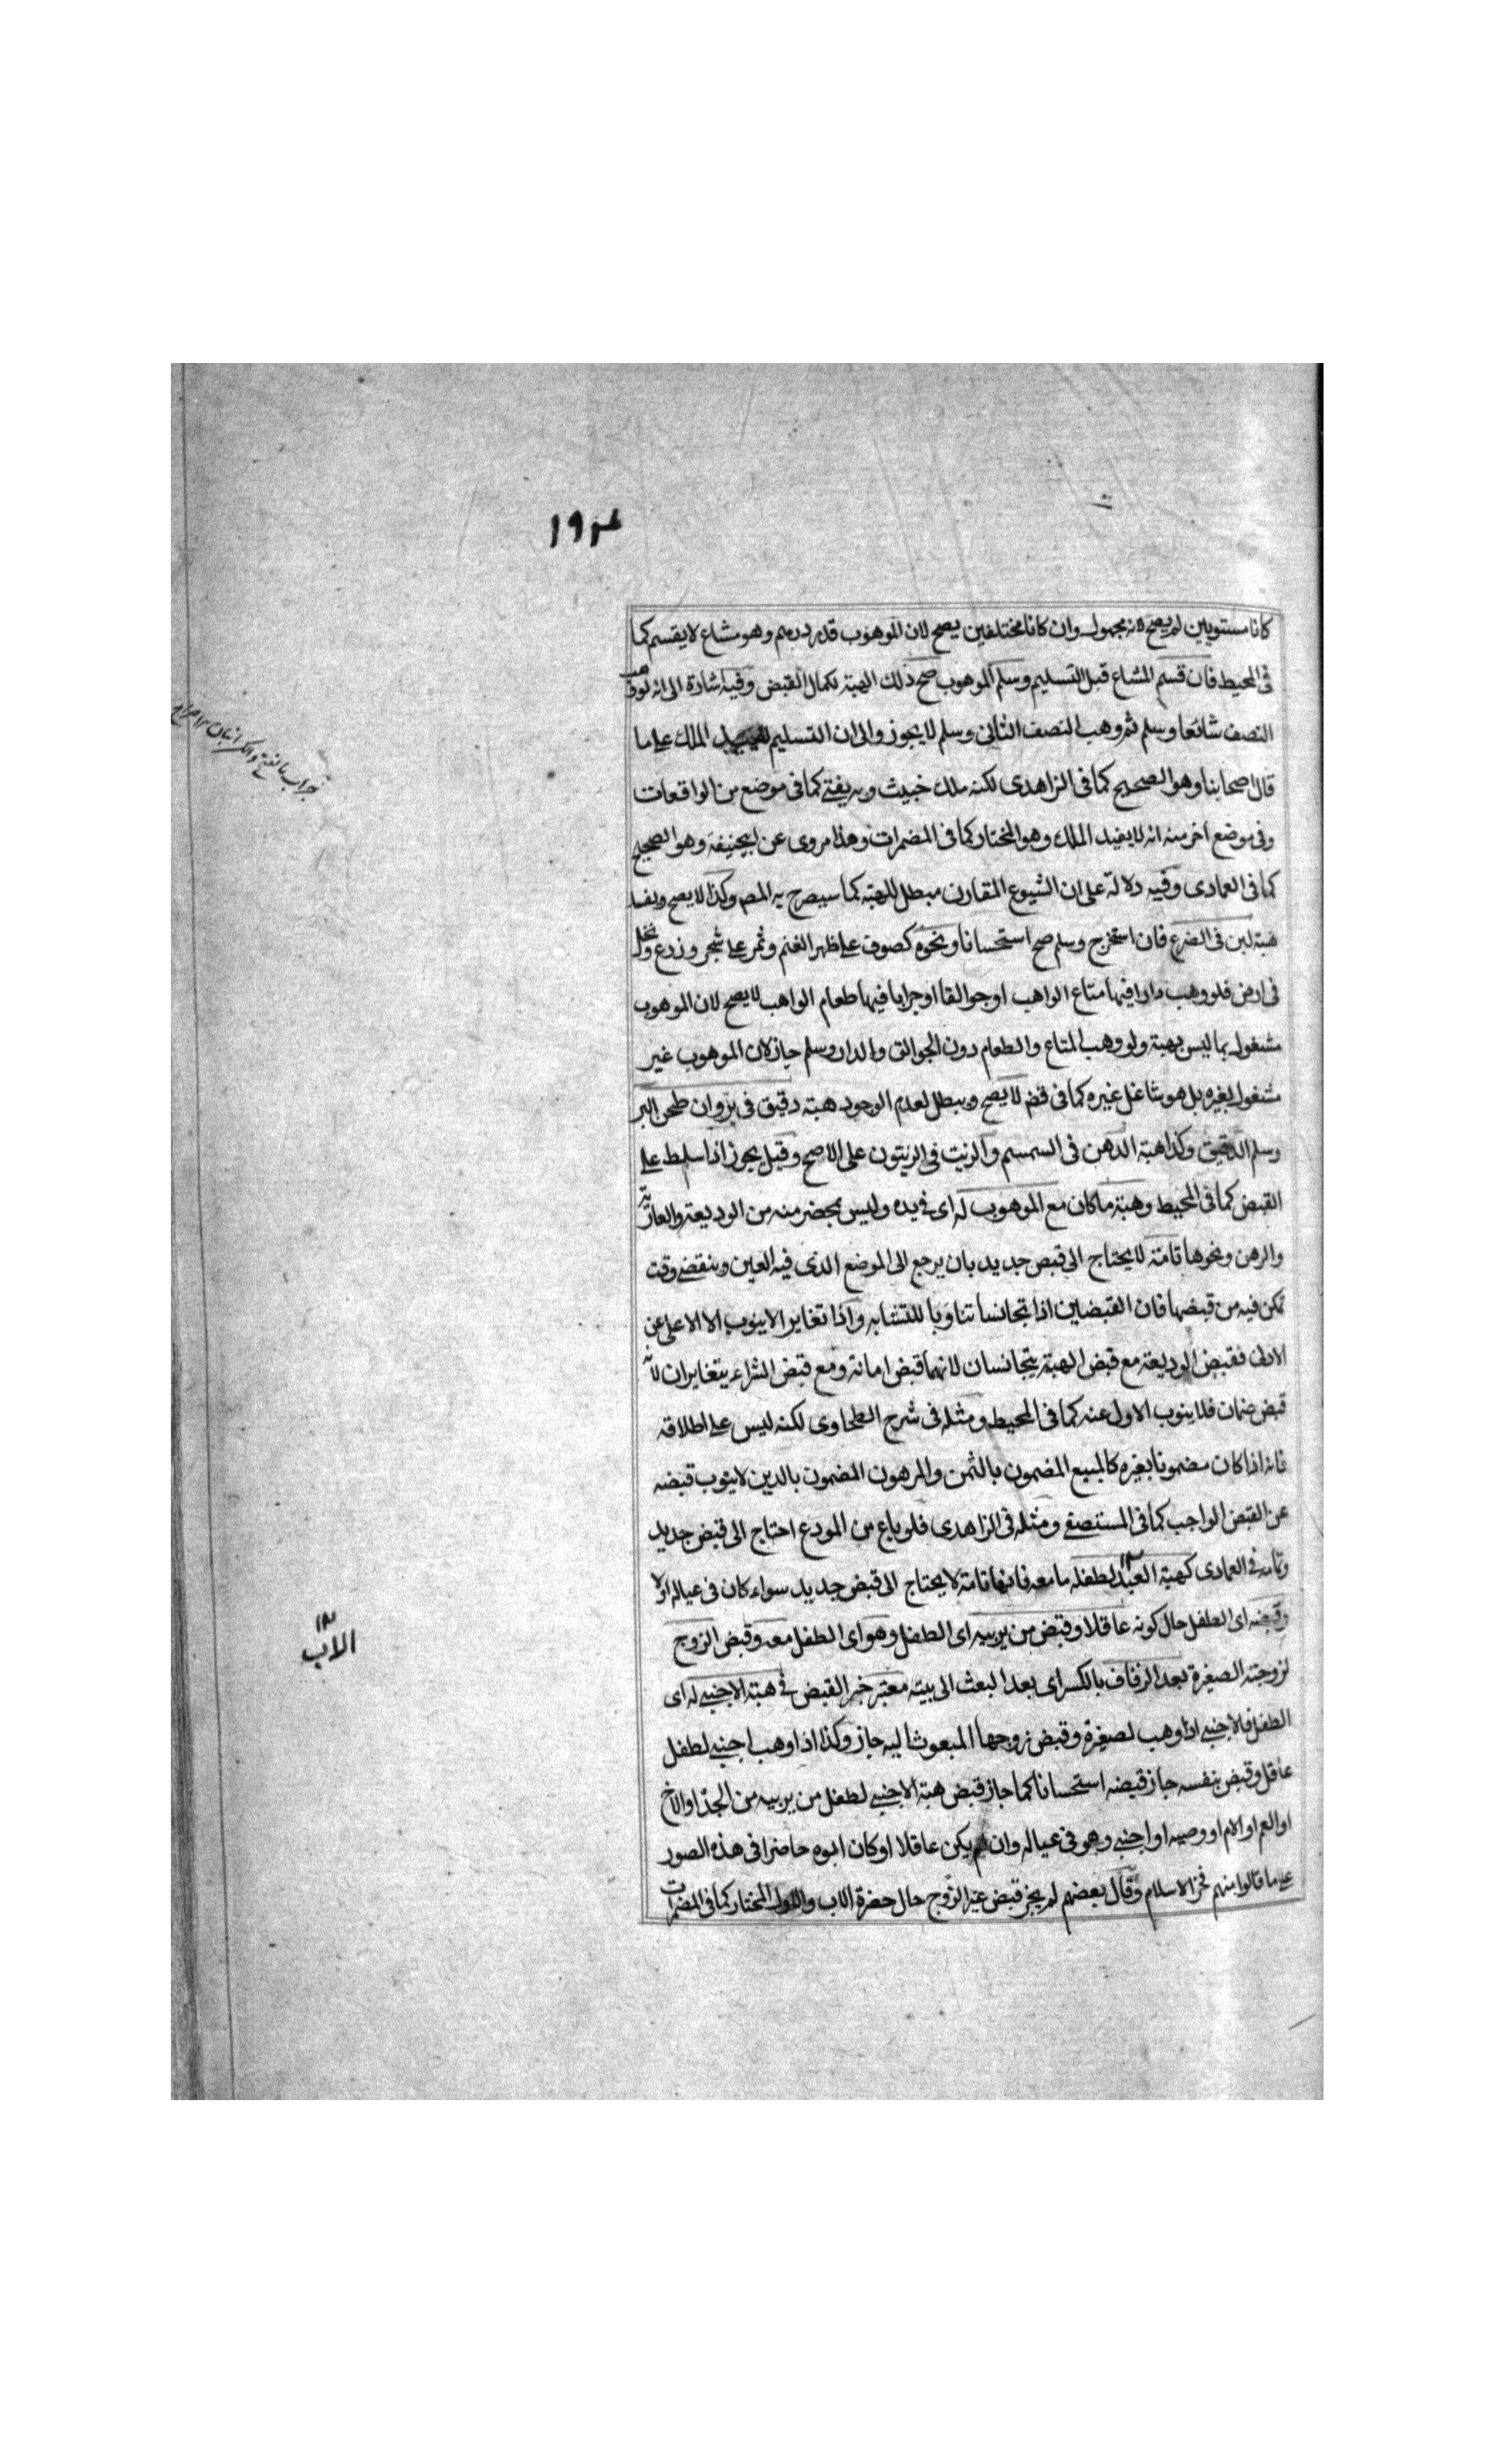 ١٩٤
كانا مستويين لم يصح لانه مجهول وان كانا مختلفين يصح لان الموهوب قدر درهم وهو مشاع لا يقسم كما
فى المحيط فان قسم المشاع قبل التسليم وسلم الموهوب صح ذلك الهبة لكمال القبض وفيه اشارة الى انه لو وهب
النصف شائعا وسلم ثم وهب النصف الثانى وسلم لا يجوز والى ان التسليم الملك على ما
قال اصحابنا وهو الصحيح كما فى الزاهدى لكنه ملك خبيث وبه يفتى كما فى موضع من الواقعات
وفى موضع اخر منه انه لا يفيد الملك وهو المختار كما فى المضمرات وهذا مروى عن ابيحنيفة وهو الصحيح
كما فى العمادى وفيه دلالة على ان الشيوع المقارن مبطل للهبة كما سيصرح به المص وكذا لا يصح ويفسد
هبة لبن فى الضرع فان استخرج وسلم صح استحسانا ونحوه كصوف على ظهر الغنم وثمر على شجر وزرع ونخل
فى ارض فلو وهب دارا فيها متاع الواهب او جوالقا او جرابا فيها طعام الواهب لا يصح لان الموهوب
مشغول بما ليس بهبة ولو وهب المتاع والطعام دون الجوالق والدار وسلم جاز لان الموهوب غير
مشغول بغيره بل هو شاغل غيره كما فى قض لا يصح ويبطل لعدم الوجود هبة دقيق فى بر وان طحن البر
وسلم الدقيق وكذا هبة الدهن فى السمسم والزيت فى الزيتون على الاصح وقيل يجوز اذا سلط على
القبض كما فى المحيط وهبة ما كان مع الموهوب له اى فى يده وليس بحضر منه من الوديعة والعارية
والرهن ونحوها تامة لا يحتاج الى قبض جديد بان يرجع الى الموضع الذى فيه العين وينقضى وقت
تمكن فيه من قبضها فان القبضين اذا تجانسا تناوبا للتشابه واذا تغاير الا ينوب الا الاعلى عن
الادنى فقبض الوديعة مع قبض الهبة يتجانسان لانهما قبض امانة ومع قبض الشراء يتغايران لانه
قبض ضمان فلا ينوب الاول عنه كما فى المحيط ومثله فى شرح الطحاوى لكنه ليس على اطلاقه
فانه اذا كان مضمونا بغيره كالمبيع المضمون بالثمن والمرهون المضمون بالدين لا ينوب قبضه
عن القبض الواجب كما فى المستصفى ومثله فى الزاهدى فلو باع من المودع احتاج الى قبض جديد
وتمامه فى العمادى كهبة لطفله ما معه فانها تامة لا يحتاج الى قبض جديد سواء كان فى عياله او لا
وقبضه اى الطفل حال كونه عاقلا وقبض من يربيه اى الطفل وهو اى الطفل معه وقبض الزوج
لزوجته الصغيرة بعد الزفاف بالكسر اى بعد البعث الى بيته معتبر خبر القبض فى هبة الاجنبى له اى
الطفل فالاجنبى اذا وهب لصغيرة وقبض زوجها المبعوث اليه جاز وكذا اذا وهب اجنبى لطفل
عاقل وقبض بنفسه جاز قبضه استحسانا كما جاز قبض هبة الاجنبى لطفل من يربيه من الجد او الاخ
او العم او الام او وصيه او اجنبى وهو فى عياله وان لم يكن عاقلا او كان ابوه حاضرا فى هذه الصور
على ما قالوا منهم فخر الاسلام وقال بعضهم لم يجز قبض غير الزوج حال حضرة الاب والاول المختار كما فى المضمرات
جراب بالفتح والكسر انبان
١٢
الاب